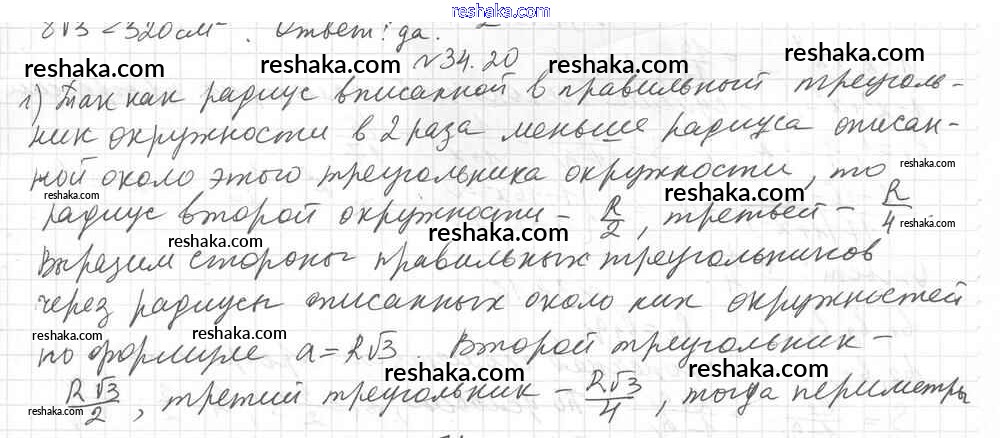 reshaka.com
8√3 < 320 см². Ответ: да.
reshaka.com reshaka.com №34.20 reshaka.com
1) Так как радиус вписанной в правильный треуголь-
ник окружности в 2 раза меньше радиуса описан-
ной около этого треугольника окружности, то reshaka.com
reshaka.com радиус второй окружности - R/2, третьей - R/4. reshaka.com
reshaka.com reshaka.com reshaka.com
Выразим стороны правильных треугольников
через радиусы описанных около них окружностей
reshaka.com reshaka.com reshaka.com
по формуле a = R√3. Второй треугольник -
reshaka.com reshaka.com reshaka.com
R√3/2, третий треугольник - R√3/4, тогда периметры
reshaka.com